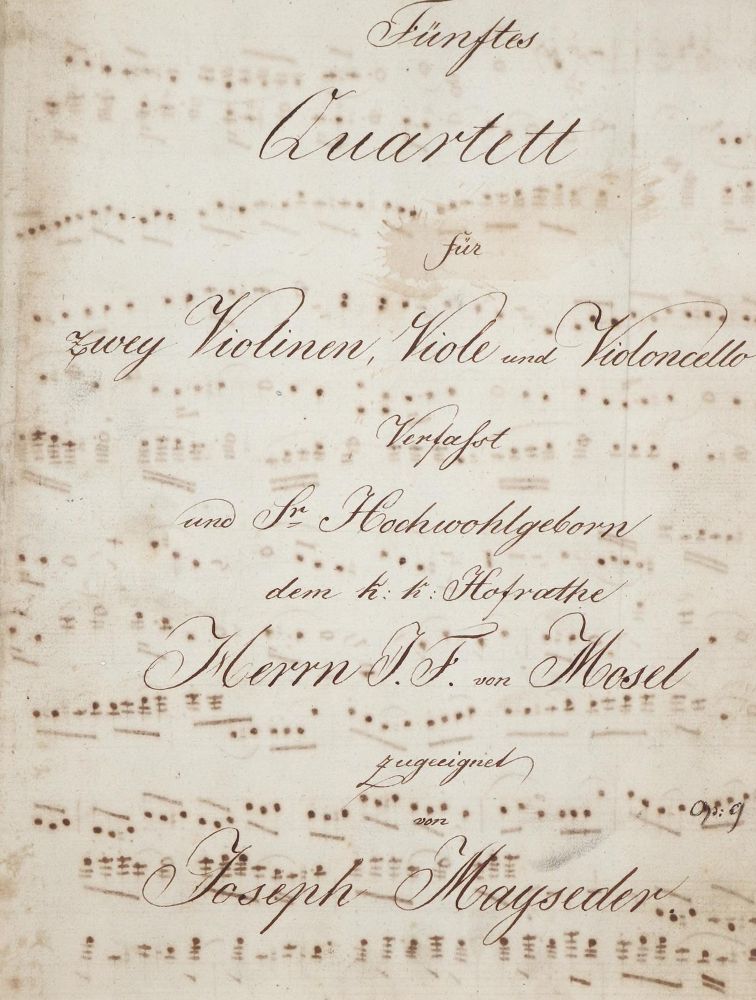 Fünftes
Quartett
für
zwey Violinen, Viole und Violoncello
Verfasst
und Sr Hochwohlgeborn
dem k: k: Hofrathe
Herrn J. F. von Mosel
zugeeignet
von
Op: 9
Joseph Mayseder.